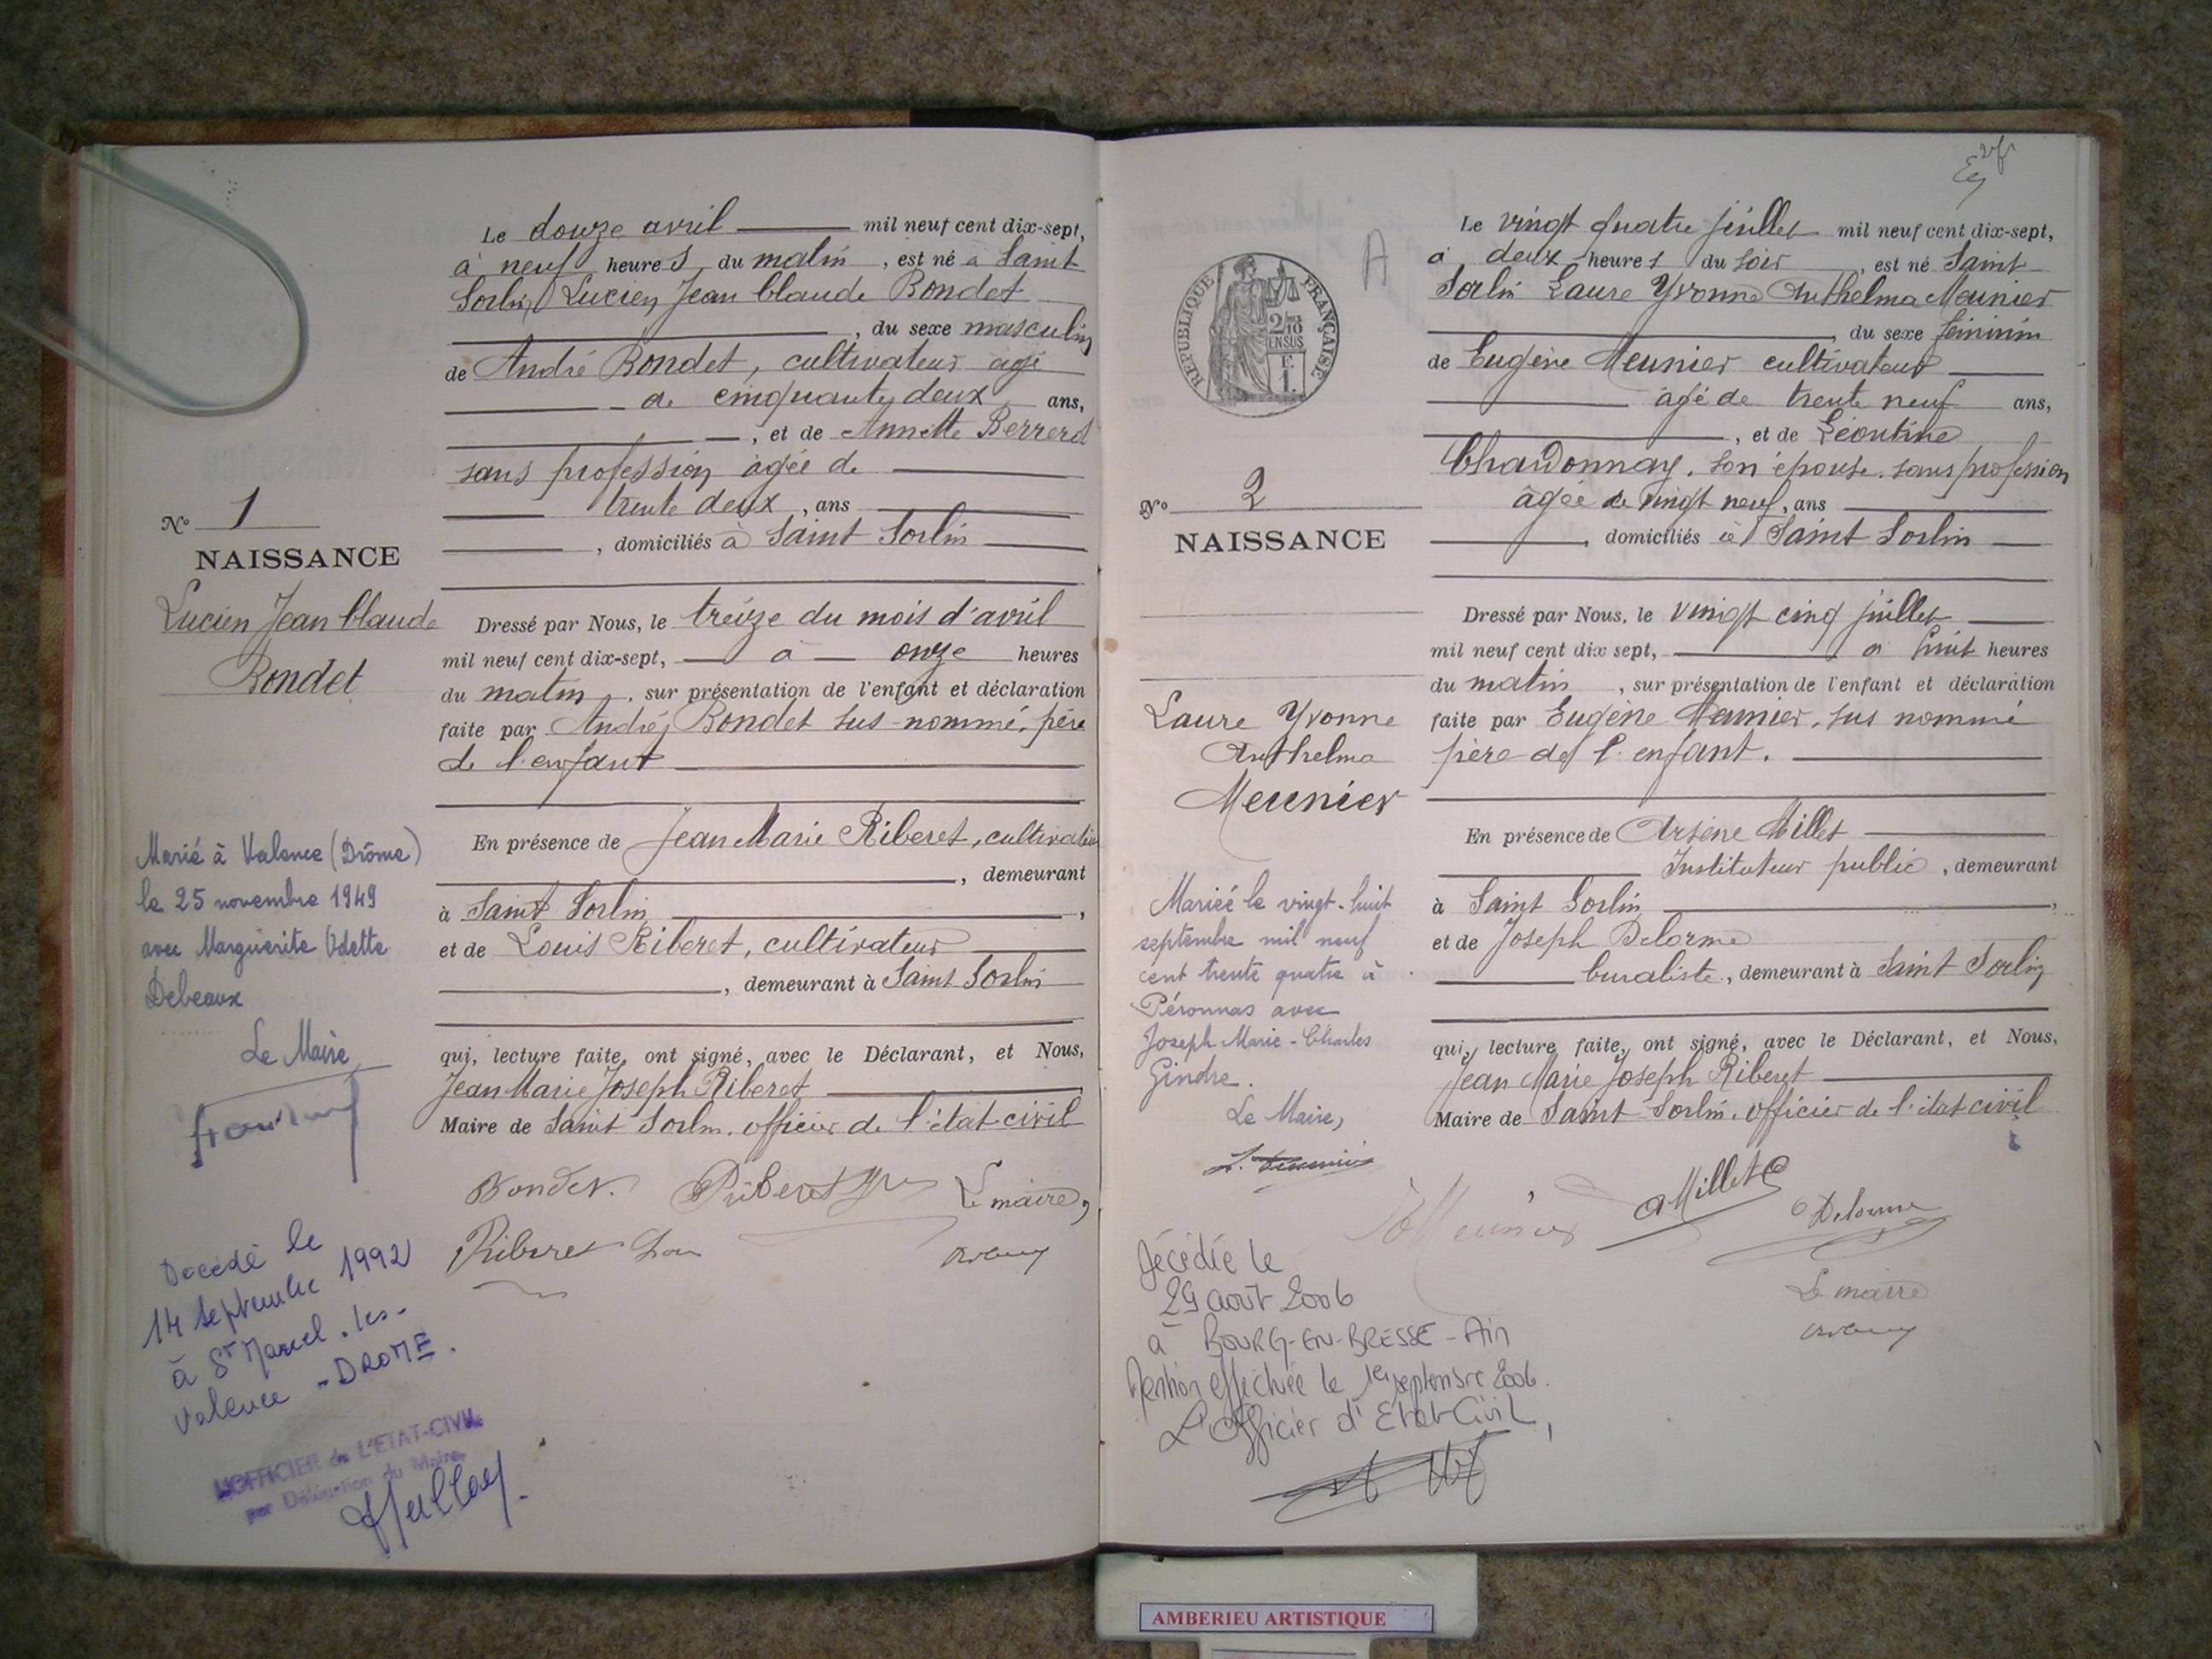 Le douze avril mil neuf cent dix-sept,
à neuf heures du matin, est né à Saint
Sorlin Lucien Jean Claude Bondet
, du sexe masculin
de André Bondet, cultivateur agé
de cinquante deux ans,
, et de Annette
sans profession agée de
trente deux, ans
, domiciliés à Saint Sorlin
N° 1
NAISSANCE
Lucien Jean Claude
Bondet
Dressé par Nous, le treize du mois d'avril
mil neuf cent dix-sept, à onze heures
du matin, sur présentation de l'enfant et déclaration
faite par André Bondet sus-nommé, père
de l'enfant
En présence de Jean Marie Riberet, cultivateur
, demeurant
à Saint Sorlin,
et de Louis Riberet, cultivateur
, demeurant à Saint Sorlin
qui, lecture faite, ont signé, avec le Déclarant, et Nous,
Jean Marie Joseph Riberet
Maire de Saint Sorlin, officier de l'état civil
Bondet. Riberet Le maire,
Riberet
Marié à Valence (Drôme)
le 25 novembre 1949
avec Marguerite Odette
Debeaux
Le Maire
Décédé le
14 septembre 1992
à St Marcel-les-
Valence - DROME.
L'OFFICIER de L'ETAT-CIVIL
par Délégation du Maire
E 1.
REPUBLIQUE FRANÇAISE
2/10
EN SUS
A
Le vingt quatre juillet mil neuf cent dix-sept,
à deux heures du soir, est né Saint
Sorlin Laure Yvonne Anthelma Meunier
, du sexe féminin
de Eugène Meunier cultivateur
âgé de trente neuf ans,
, et de Léontine
Chardonnay, son épouse, sans profession
âgée de vingt neuf, ans
, domiciliés à Saint Sorlin
N° 2
NAISSANCE
Laure Yvonne
Anthelma
Meunier
Dressé par Nous, le vingt cinq juillet
mil neuf cent dix sept, à huit heures
du matin, sur présentation de l'enfant et déclaration
faite par Eugène Meunier, sus nommé
père de l'enfant.
En présence de Arsène Millet
Instituteur public, demeurant
à Saint Sorlin,
et de Joseph Delorme
buraliste, demeurant à Saint Sorlin
qui, lecture faite, ont signé, avec le Déclarant, et Nous,
Jean Marie Joseph Riberet
Maire de Saint Sorlin, officier de l'état civil
Meunier AMillet Delorme
Le maire
Mariée le vingt-huit
septembre mil neuf
cent trente quatre à
Péronnas avec
Joseph Marie-Charles
Gindre.
Le Maire,
Décédée le
29 août 2006
à BOURG-EN-BRESSE - Ain
Mention effectuée le 1er septembre 2006.
L'Officier d'Etat-Civil,
AMBERIEU ARTISTIQUE